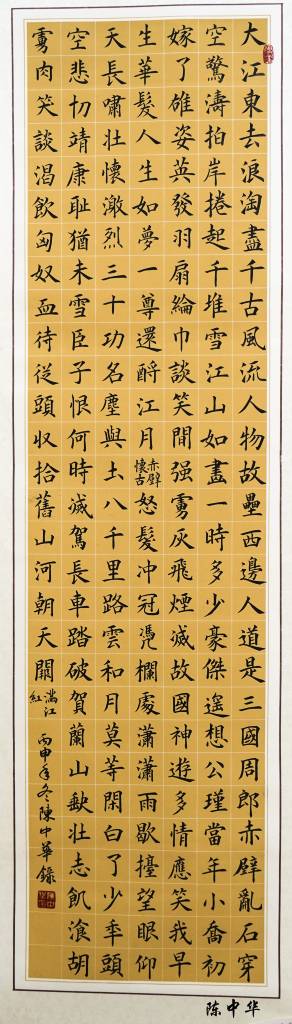 大江東去浪淘盡千古風流人物故壘西邊人道是三國周郎赤壁亂石穿
空驚濤拍岸捲起千堆雪江山如畫一時多少豪傑遙想公瑾當年小喬初
嫁了雄姿英發羽扇綸巾談笑間强虜灰飛煙滅故國神遊多情應笑我早
生華髮人生如夢一尊還酹江月赤壁懷古怒髮冲冠凴欄處瀟瀟雨歇擡望眼仰
天長嘯壮懷激烈三十功名塵與土八千里路雲和月莫等閑白了少年頭
空悲切靖康耻猶未雪臣子恨何時滅駕長車踏破賀蘭山缺壮志飢飡胡
虜肉笑談渴飲匈奴血待從頭收拾舊山河朝天闕滿江紅丙申年冬陳中華錄
陈中华